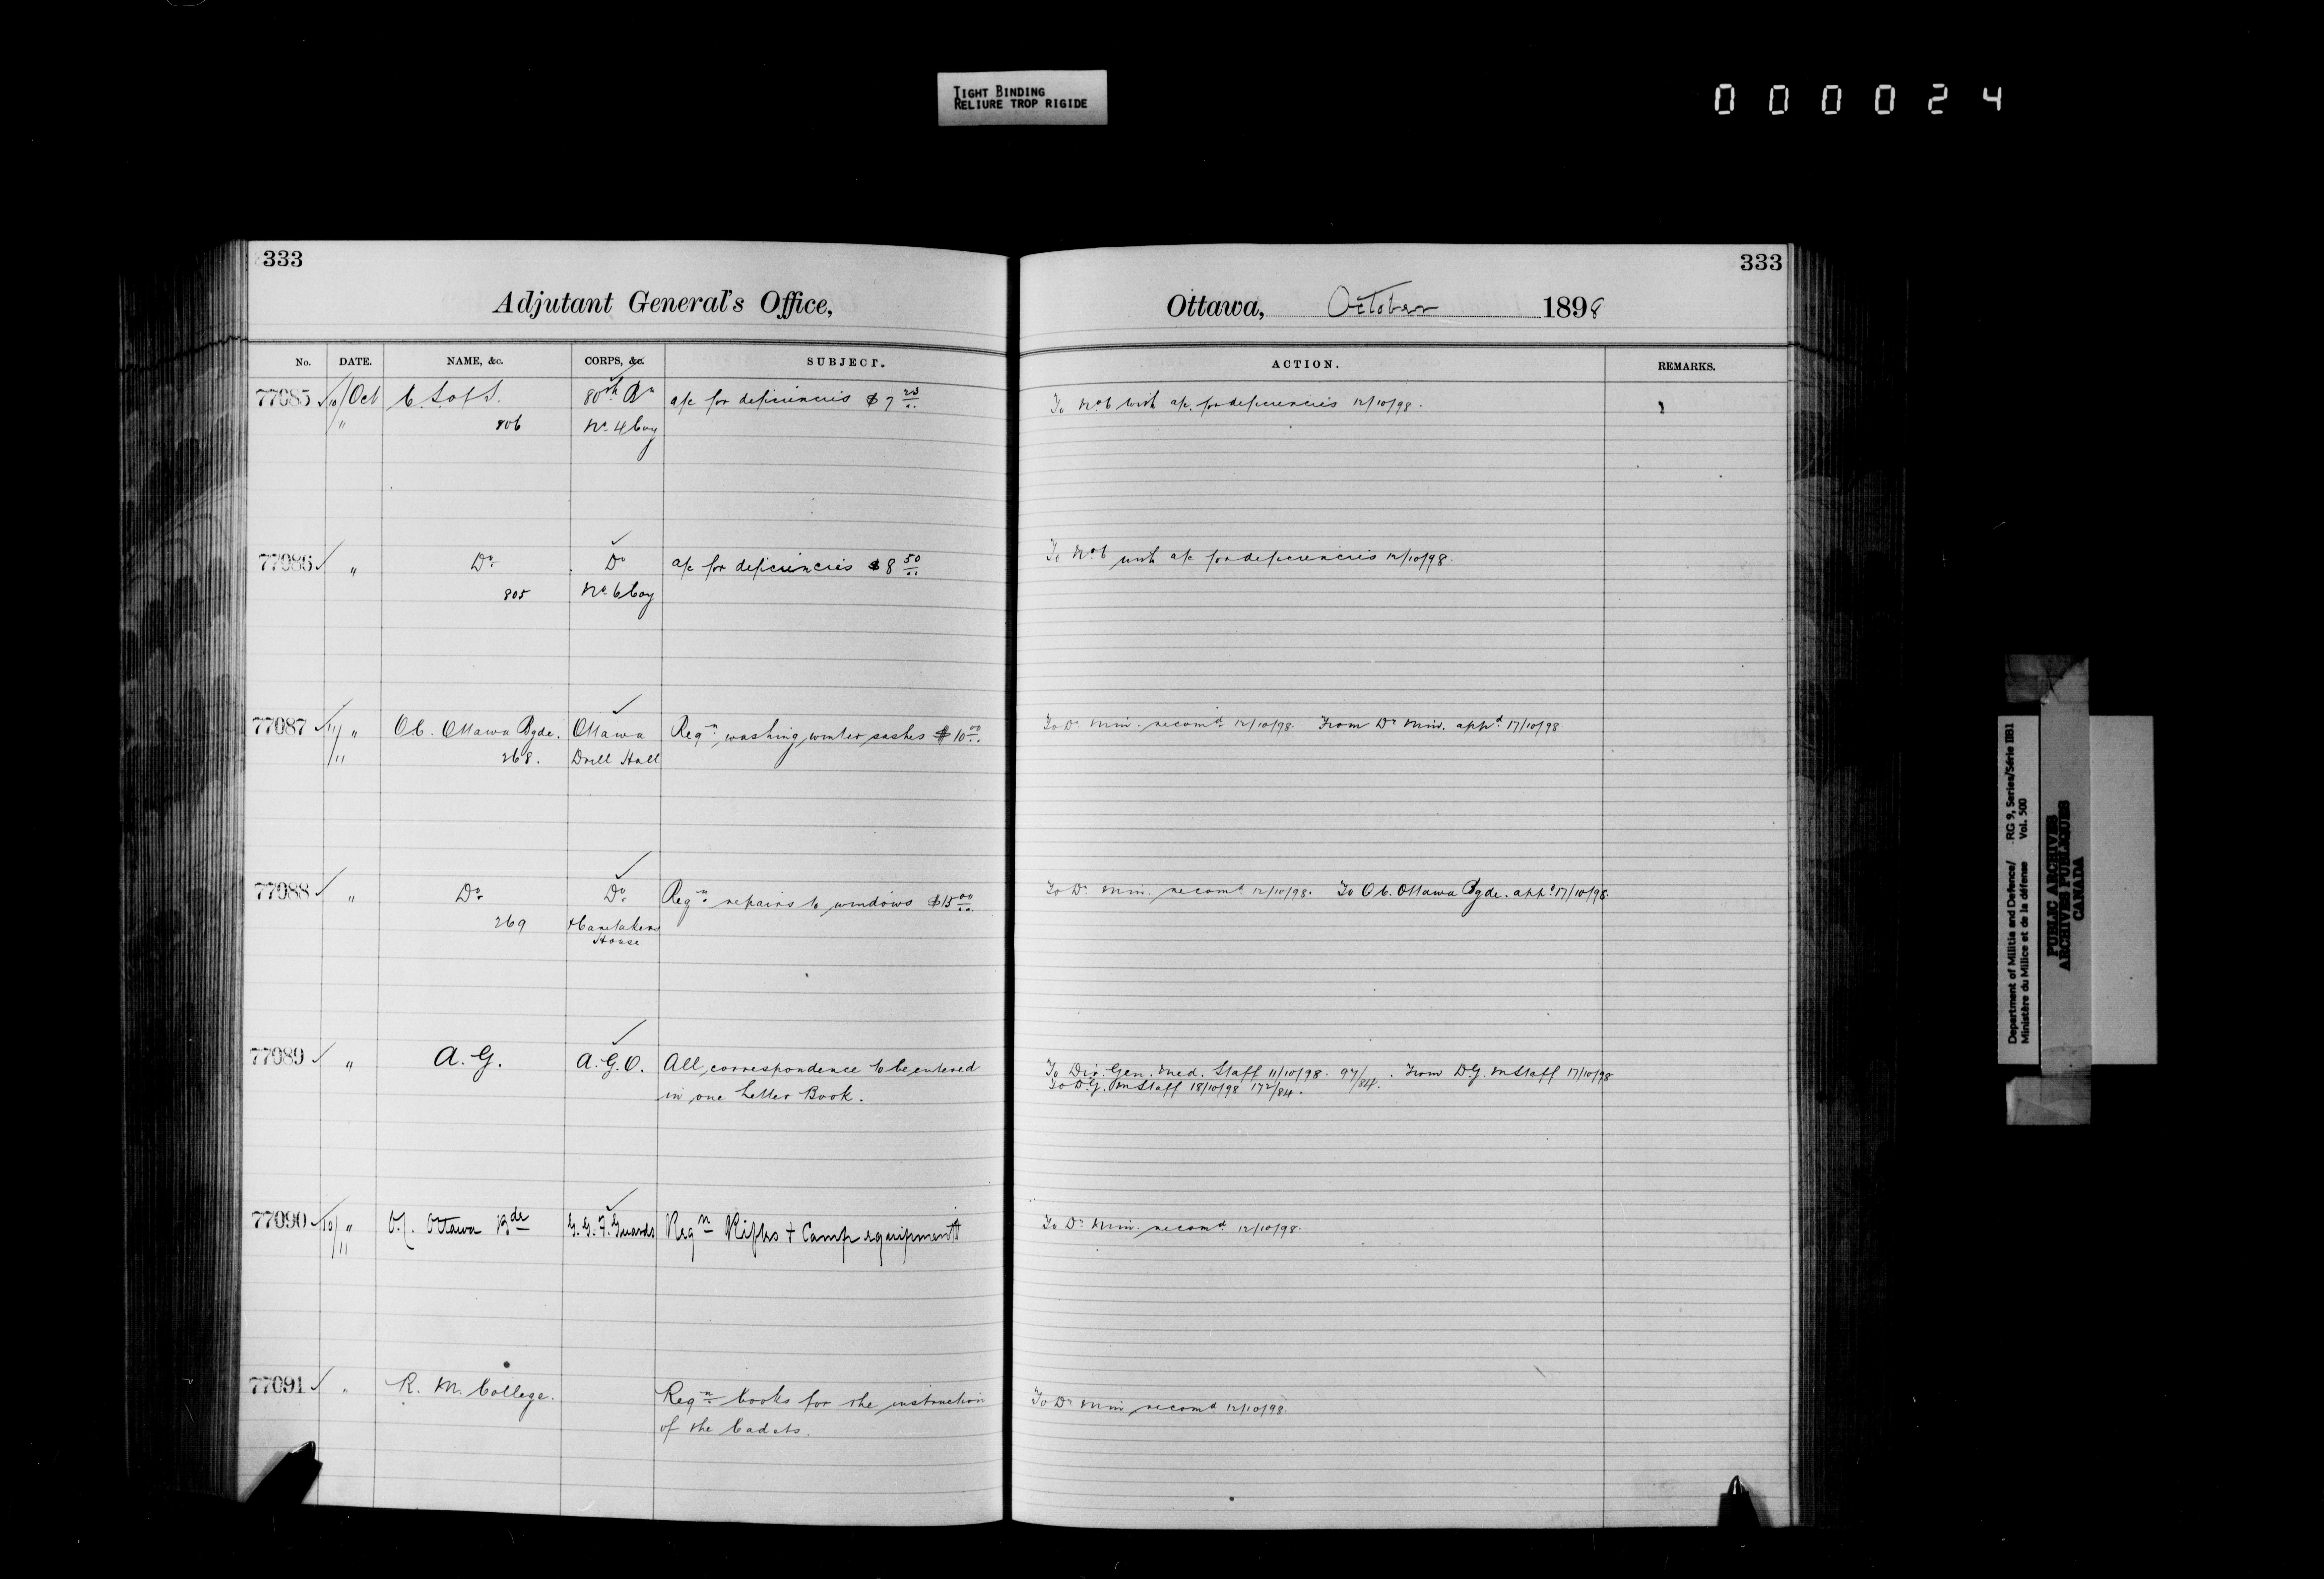 TIGHT BINDING
RELIURE TROP RIGIDE
000024
333
Adjutant General's Office,
No. DATE. NAME, &c. CORPS, &c. SUBJECT.
77085 10/11 Oct C. S of S. 80th Bn a/c for deficiencies $7
806 No. 4 Coy
77086 " Do Do a/c for deficiencies $8 50
805 No. 6 Coy
77087 11/11 " O.C. Ottawa Bgde. Ottawa Reqn washing winter sashes $10 00
268. Drill Hall
77088 " Do Do Reqn repairs to windows $15 00
269 + Caretakers
House
77089 " A. G. A.G.O. All correspondence to be entered
in one Letter Book.
77090 10/11 " O.C. Ottawa Bde G.G.F. Guards Reqn Rifles + Camp equipment
77091 " R. M. College. Reqn books for the instruction
of the Cadets.
333
Ottawa, October 1898
ACTION. REMARKS.
To No 6 with a/c. for deficiencies 12/10/98.
To No 6 with a/c for deficiencies 12/10/98.
To Dr Min. recomd 12/10/98. From Dr Min. appd 17/10/98
To Dr Min. recomd 12/10/98. To O.C. Ottawa Bgde. appd 17/10/98.
To Dir. Gen. Med. Staff 11/10/98. 97/84. From D.G. M Staff 17/10/98
To D.G. M Staff 18/10/98 172/84.
To Dr Min. recomd 12/10/98.
To Dr Min recomd 12/10/98.
Department of Militia and Defence/ RG 9, Series/Série IIB1
Ministère du Milice et de la défense Vol. 500
PUBLIC ARCHIVES
ARCHIVES PUBLIQUES
CANADA